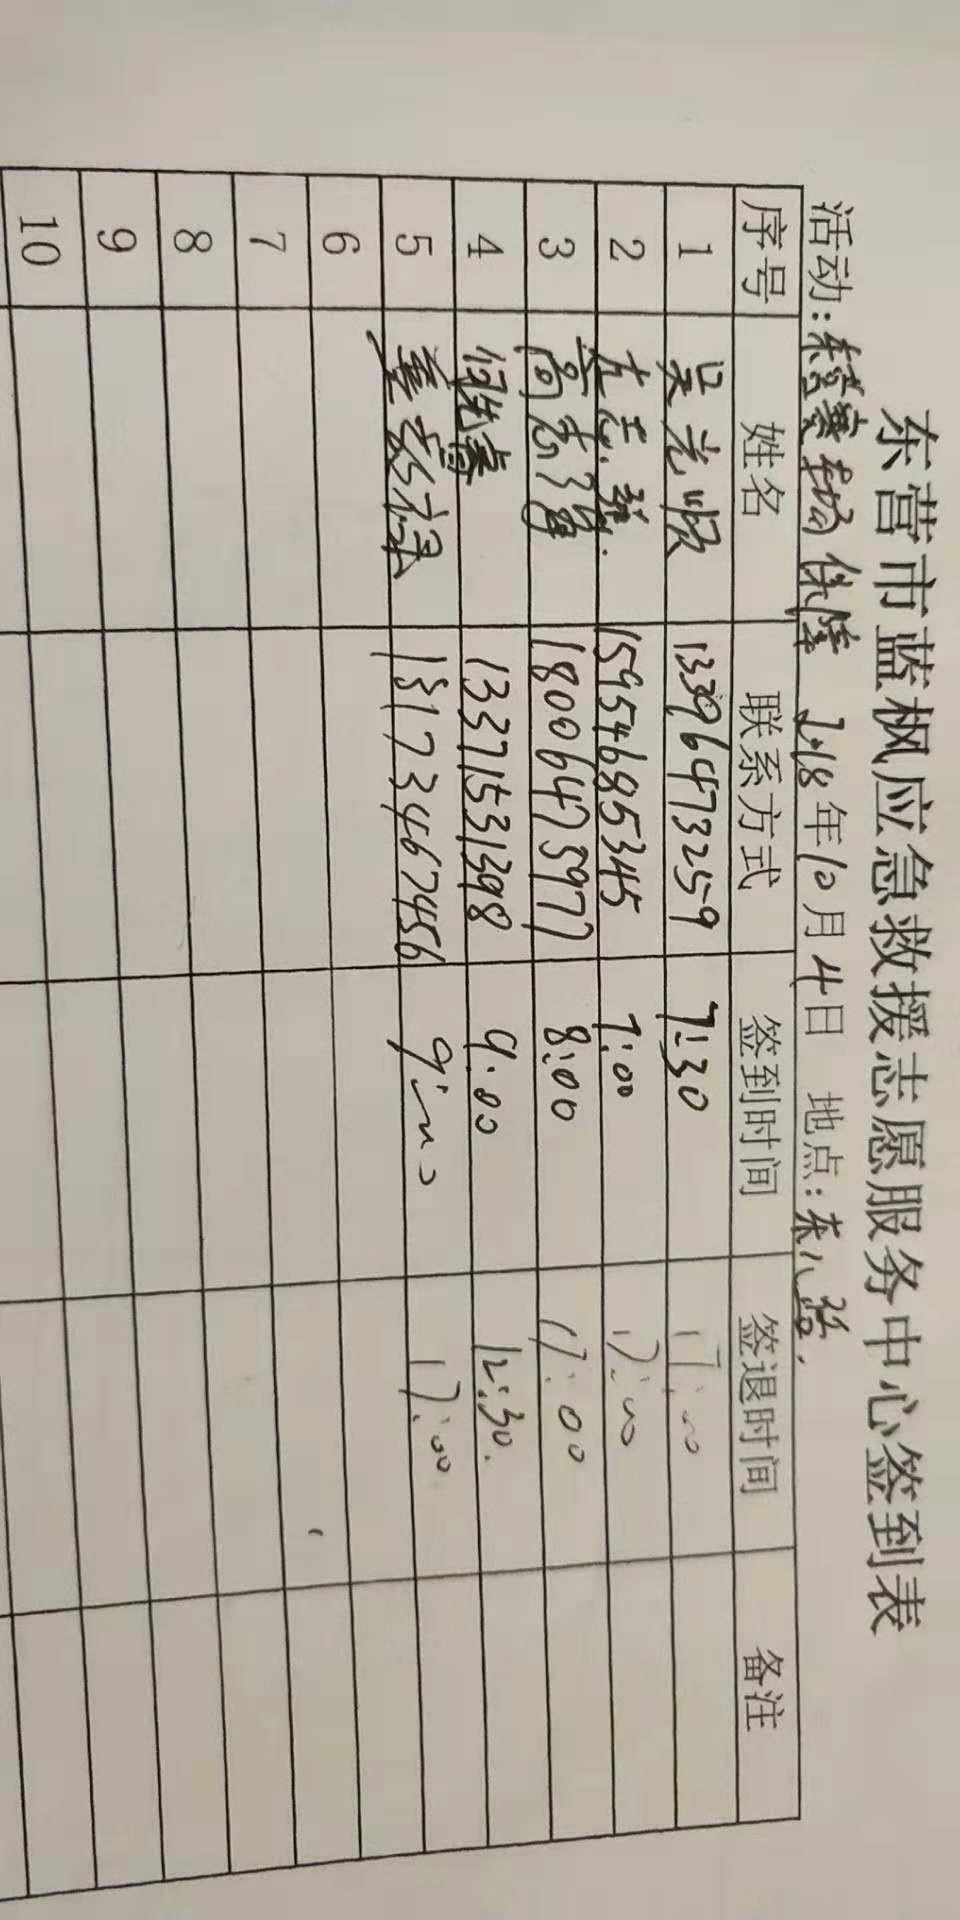 东营市蓝枫应急救援志愿服务中心签到表
活动:东营赛场保障 2018年10月4日 地点:东八路.
序号 姓名 联系方式 签到时间 签退时间 备注
1 吴光顺 13396473259 7:30 17:00
2 15954685345 7:00 17:00
3 1800647597 8:00 17:00
4 13371531398 9.00 12:30.
5 13173467456 9:00 17:00
6
7
8
9
10